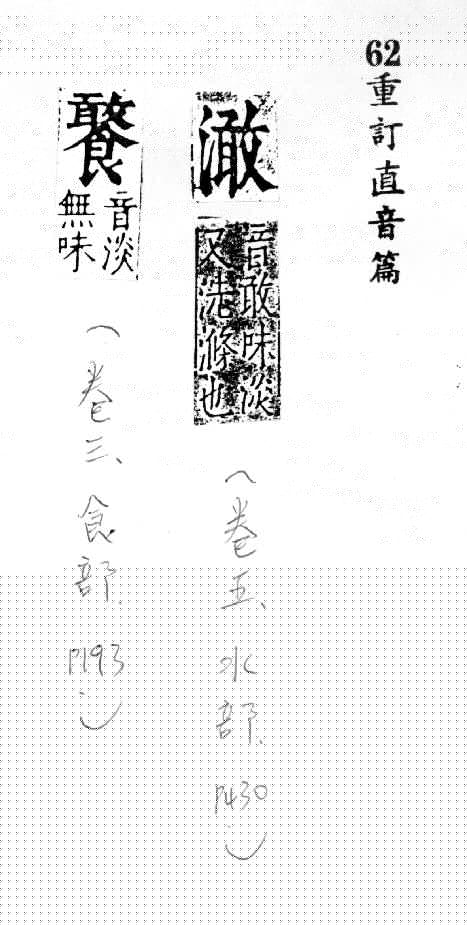 62
重訂直音篇
澉
音敢味淡
又洗滌也
(卷五、水部、P430)
音淡
無味
(卷三、食部、P193)